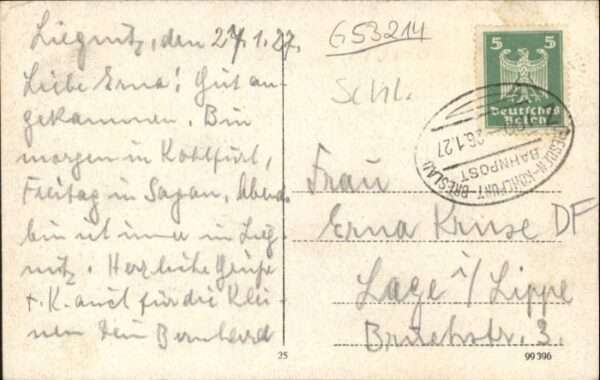 Liegnitz, den 27.1.27.
Liebe Erna! Gut an-
gekommen. Bin
morgen in Kohlfurt,
Freitag in Sagan, Abends
bin ich immer in Lieg-
nitz. Herzliche Grüße
+ K. auch für die Klei-
nen Dein Bernhard
G53214
Schl.
5 5
Deutsches
Reich
DRESDEN-KOHLFURT-BRESLAU
BAHNPOST
26.1.27
Frau
Erna Kruse DF
Lage i/Lippe
Bruchstr. 3.
25
99396